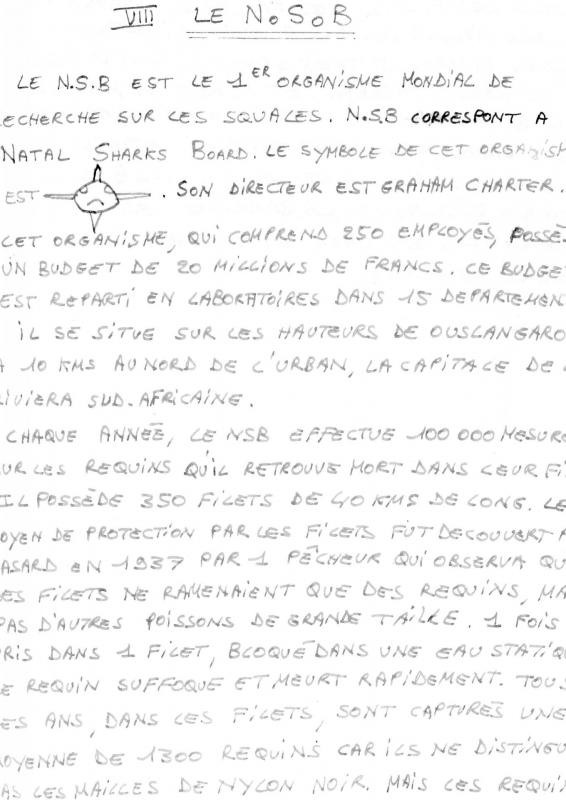 VIII LE N.S.B
LE N.S.B EST LE 1ER ORGANISME MONDIAL DE
ECHERCHE SUR LES SQUALES. N.S.B CORRESPONT A
NATAL SHARKS BOARD. LE SYMBOLE DE CET ORGANISM
EST . SON DIRECTEUR EST GRAHAM CHARTER.
CET ORGANISME, QUI COMPREND 250 EMPLOYÉS, POSSÈ
UN BUDGET DE 20 MILLIONS DE FRANCS. CE BUDGE
EST REPARTI EN LABORATOIRES DANS 15 DEPARTEMEN
IL SE SITUE SUR LES HAUTEURS DE OUSLANGARO
A 10 KMS AU NORD DE L'URBAN, LA CAPITALE DE
RIVIERA SUD-AFRICAINE.
CHAQUE ANNÉE, LE NSB EFFECTUE 100 000 MESUR
UR LES REQUINS QU'IL RETROUVE MORT DANS LEUR FI
IL POSSÈDE 350 FILETS DE 40 KMS DE LONG. LE
OYEN DE PROTECTION PAR LES FILETS FUT DECOUVERT
ASARD EN 1937 PAR 1 PÊCHEUR QUI OBSERVA QU
ES FILETS NE RAMENAIENT QUE DES REQUINS, MA
PAS D'AUTRES POISSONS DE GRANDE TAILLE. 1 FOIS
PRIS DANS 1 FILET, BLOQUÉ DANS UNE EAU STATIQU
E REQUIN SUFFOQUE ET MEURT RAPIDEMENT. TOUS
ES ANS, DANS LES FILETS, SONT CAPTURÉS UNE
OYENNE DE 1300 REQUINS CAR ILS NE DISTINGU
AS LES MAILLES DE NYLON NOIR. MAIS LES REQUI